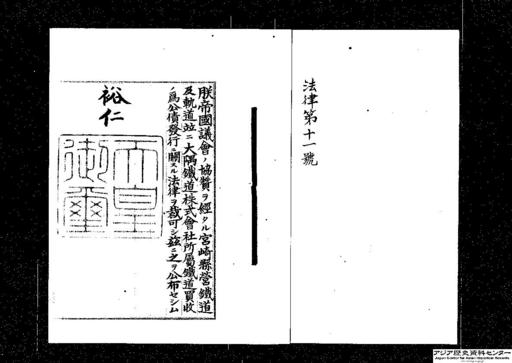 法律第十一號
朕帝國議會ノ協贊ヲ經タル宮崎縣營鐵道
及軌道竝ニ大隅鐵道株式會社所屬鐵道買收
ノ爲公債發行ニ關スル法律ヲ裁可シ茲ニ之ヲ公布セシム
裕仁
天皇
御璽
アジア歴史資料センター
Japan Center for Asian Historical Records